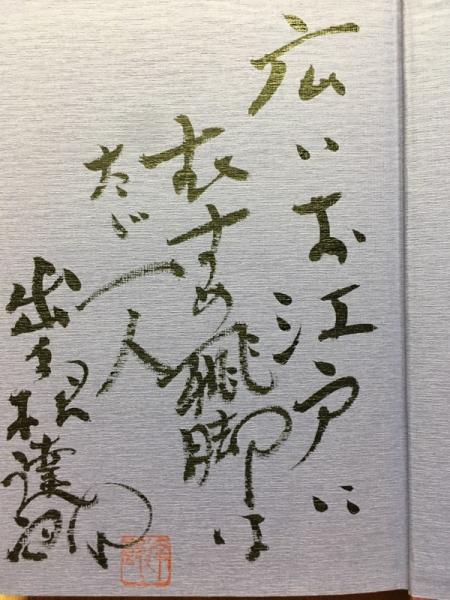 広いお江戸に
むすめ飛脚は
ただ一人
出久根達郎